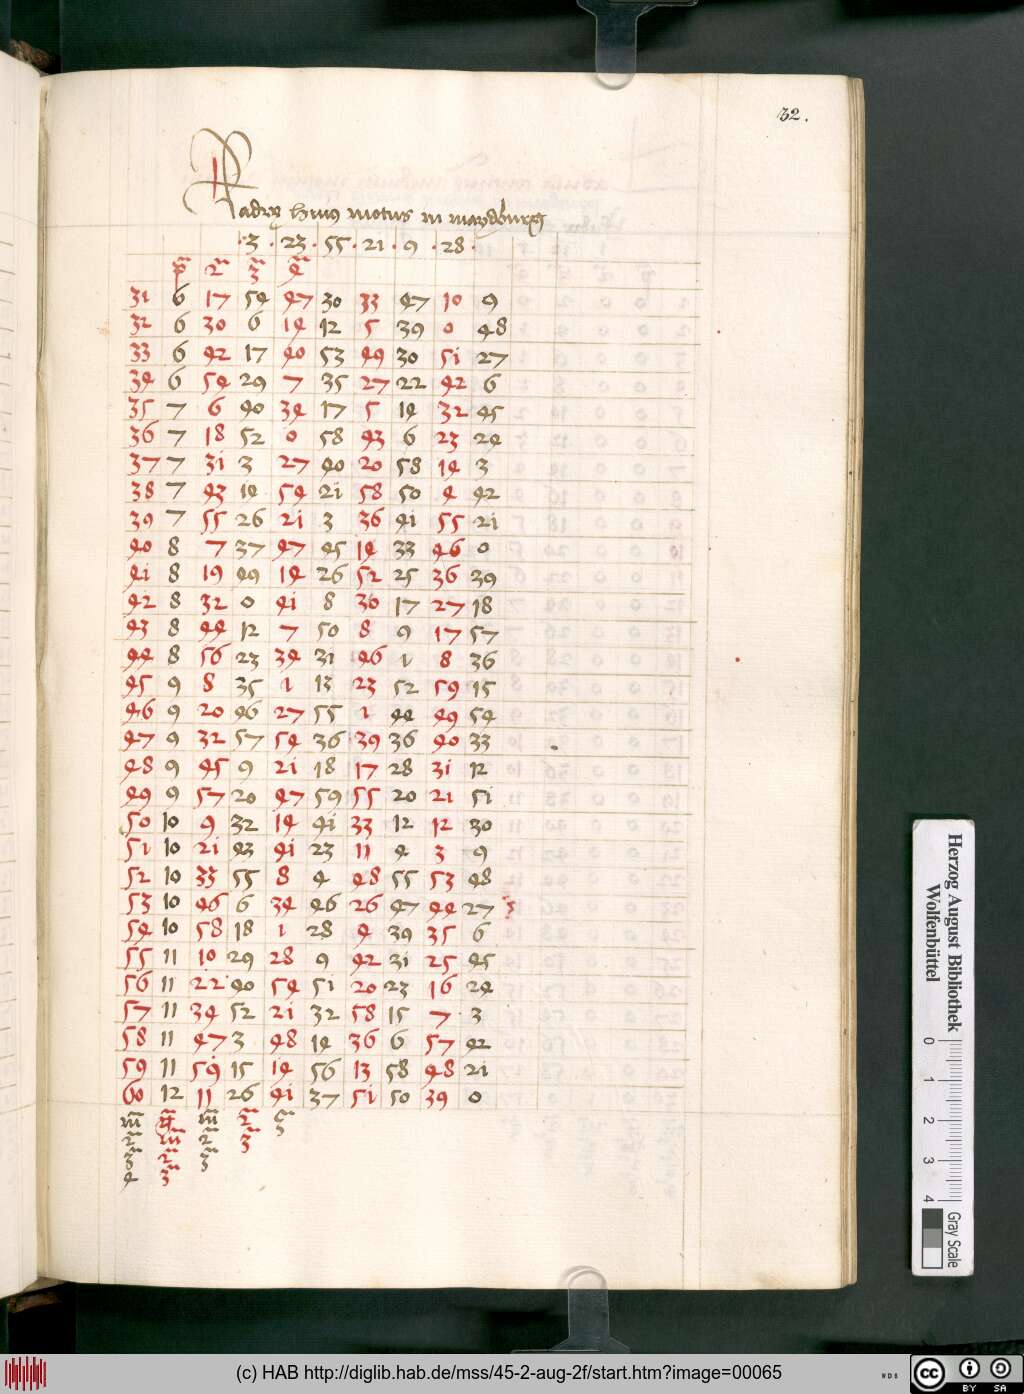 32.
Radix hui9 motus in maydburg
· 3 · 23 · 55 · 21 · 9 · 28 ·
p̃ 2̃ 3̃ 4̃
31 6 17 54 47 30 33 47 10 9
32 6 30 6 14 12 5 39 0 48
33 6 42 17 40 53 49 30 51 27
34 6 54 29 7 35 27 22 42 6
35 7 6 40 34 17 5 14 32 45
36 7 18 52 0 58 43 6 23 24
37 7 31 3 27 40 20 58 14 3
38 7 43 14 54 21 58 50 4 42
39 7 55 26 21 3 36 41 55 21
40 8 7 37 47 45 14 33 46 0
41 8 19 49 14 26 52 25 36 39
42 8 32 0 41 8 30 17 27 18
43 8 44 12 7 50 8 9 17 57
44 8 56 23 34 31 46 1 8 36
45 9 8 35 1 13 23 52 59 15
46 9 20 46 27 55 1 44 49 54
47 9 32 57 54 36 39 36 40 33
48 9 45 9 21 18 17 28 31 12
49 9 57 20 47 59 55 20 21 51
50 10 9 32 14 41 33 12 12 30
51 10 21 43 41 23 11 4 3 9
52 10 33 55 8 4 48 55 53 48
53 10 46 6 34 46 26 47 44 27 3
54 10 58 18 1 28 4 39 35 6
55 11 10 29 28 9 42 31 25 45
56 11 22 40 54 51 20 23 16 24
57 11 34 52 21 32 58 15 7 3
58 11 47 3 48 14 36 6 57 42
59 11 59 15 14 56 13 58 48 21
60 12 11 26 41 37 51 50 39 0
m̃ m̃ 2̃ 3̃
2̃ m̃ 2̃ 3̃
3̃ 2̃ 3̃
4 3̃
Herzog August Bibliothek
Wolfenbüttel
0 1 2 3 4
Gray Scale
(c) HAB http://diglib.hab.de/mss/45-2-aug-2f/start.htm?image=00065
WDB
cc BY SA